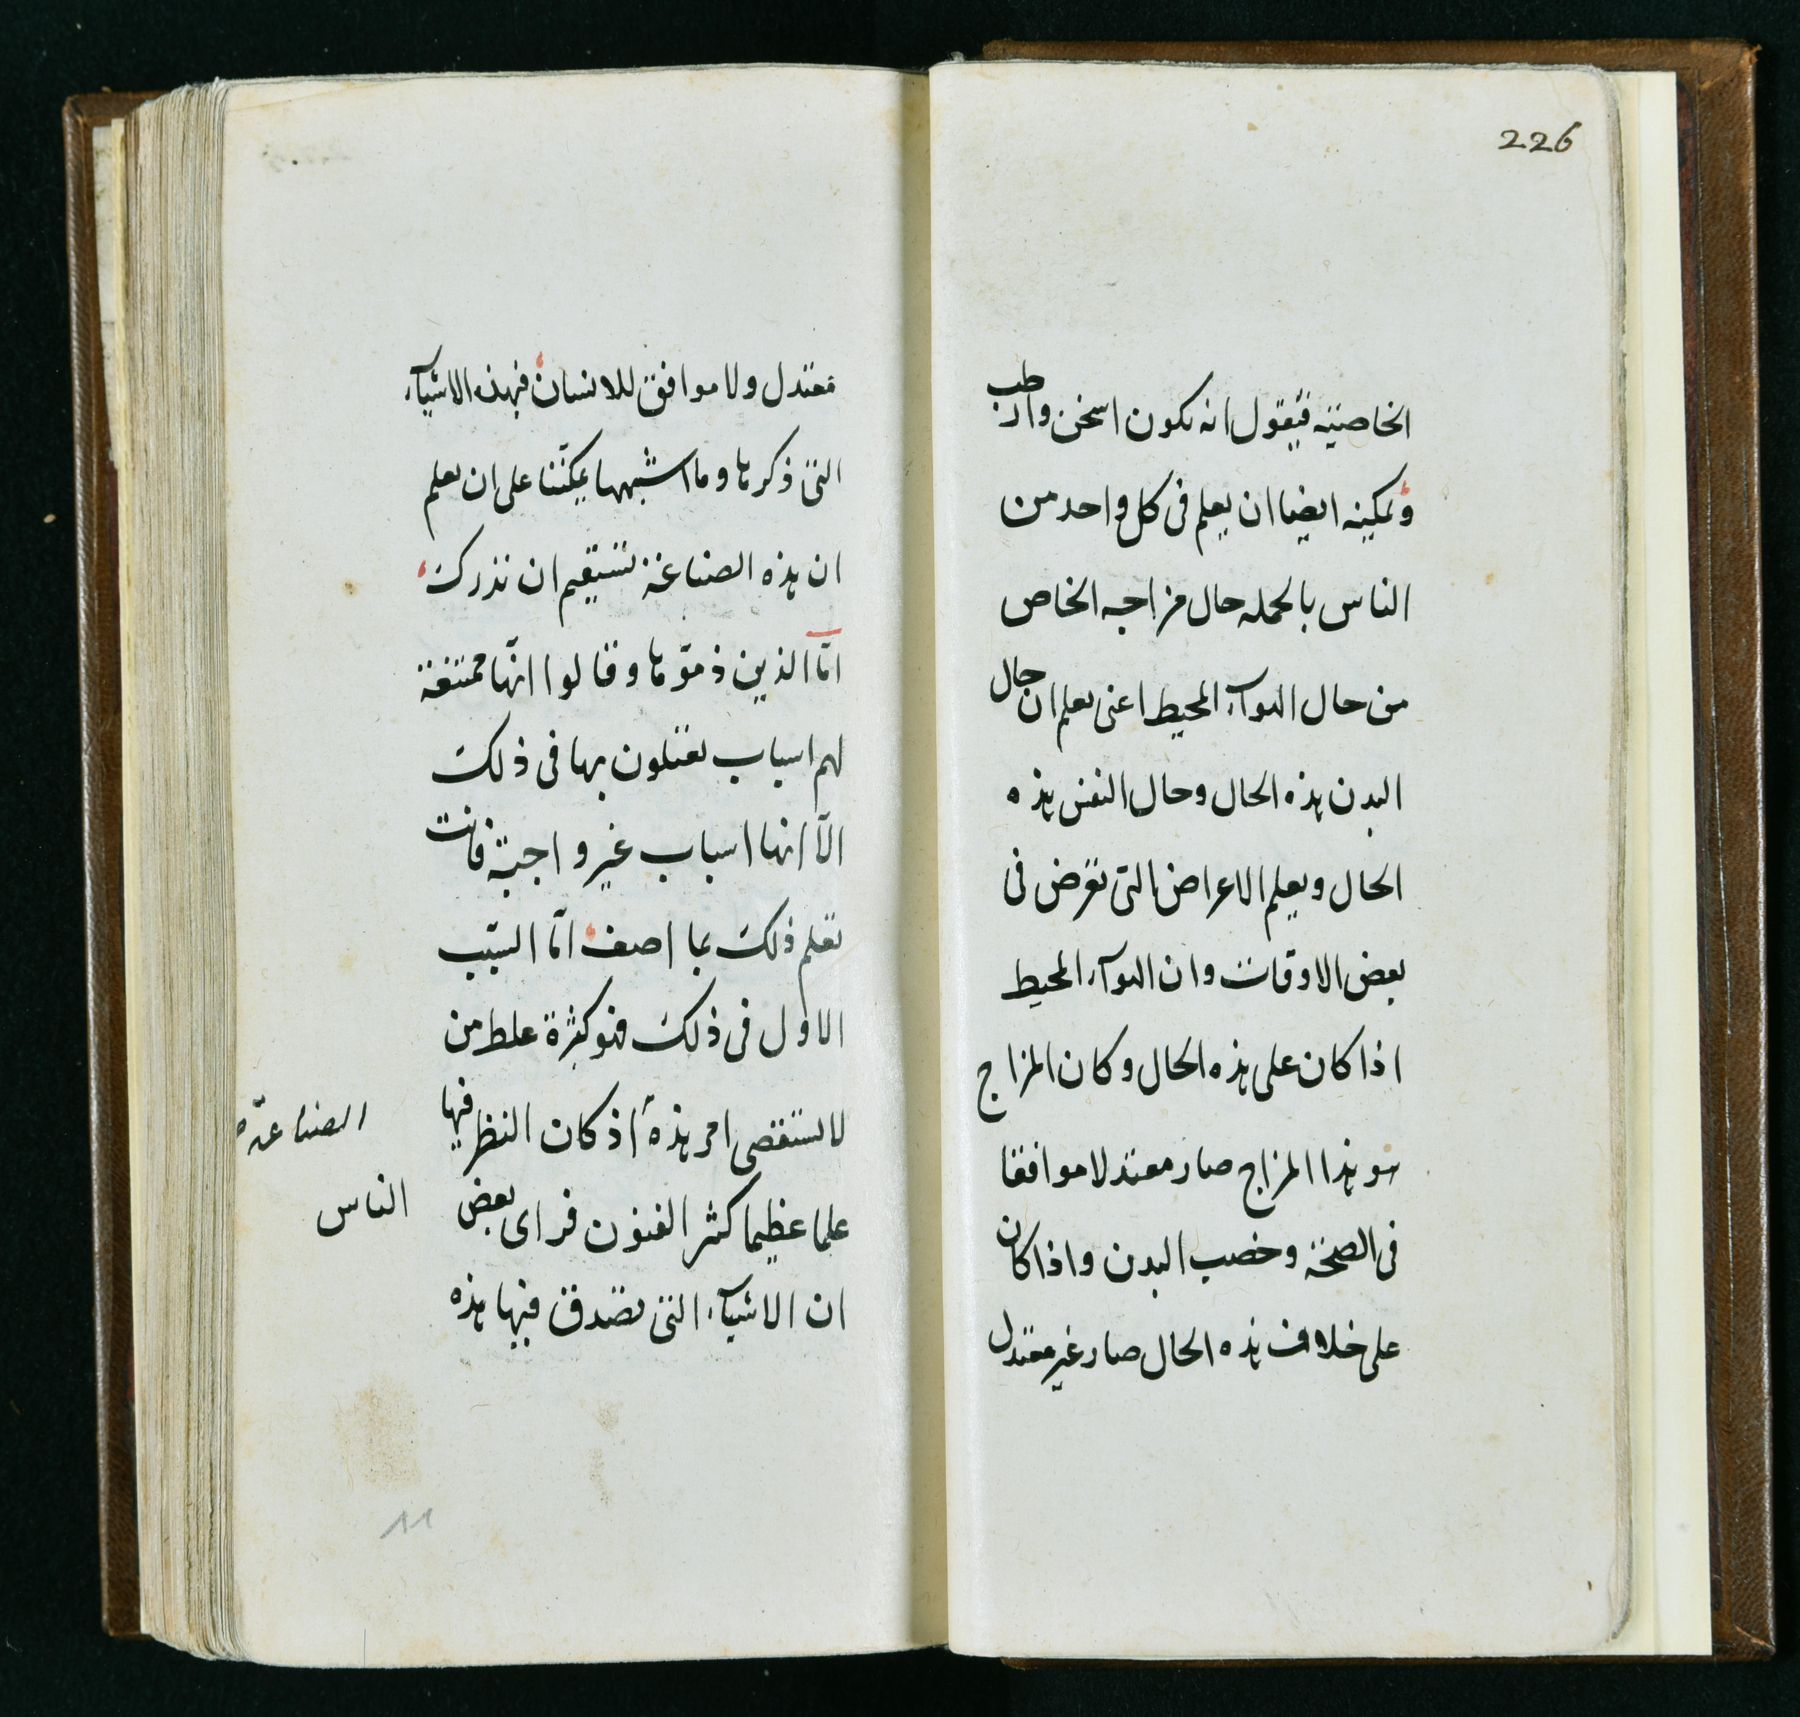 226
الخاصية فيقول انه يكون اسخن وارطب
ويمكنه ايضا ان يعلم فى كل واحد من
الناس بالجملة حال مزاجه الخاص
من حال الهوآء المحيط اعنى يعلم ان حال
البدن هذه الحال وحال النفس هذه
الحال ويعلم الاعراض التى تعرض فى
بعض الاوقات وان الهوآء المحيط
اذا كان على هذه الحال وكان المزاج
هو هذا المزاج صار معتدلا موافقا
فى الصحة وخصب البدن واذا كان
على خلاف هذه الحال صار غير معتدل
معتدل ولا موافق للانسان فهذه الاشيآء
التى ذكرها وما اشبهها يمكننا على ان يعلم
ان هذه الصناعة تستقيم ان تدرك
امّا الذين ذمّوها وقالوا انّها ممتنعة
لهم اسباب يعتلون بها فى ذلك
الّا انها اسباب غير واجبة فانت
تعلم ذلك بما اصف امّا السّبب
الاول فى ذلك فهو كثرة غلط من
لا يستقصى امر هذه اذ كان النظر فيها
الصناعة
علما عظيما كثر الفنون فراى بعض
الناس
ان الاشيآء التى تصدق فيها هذه
11